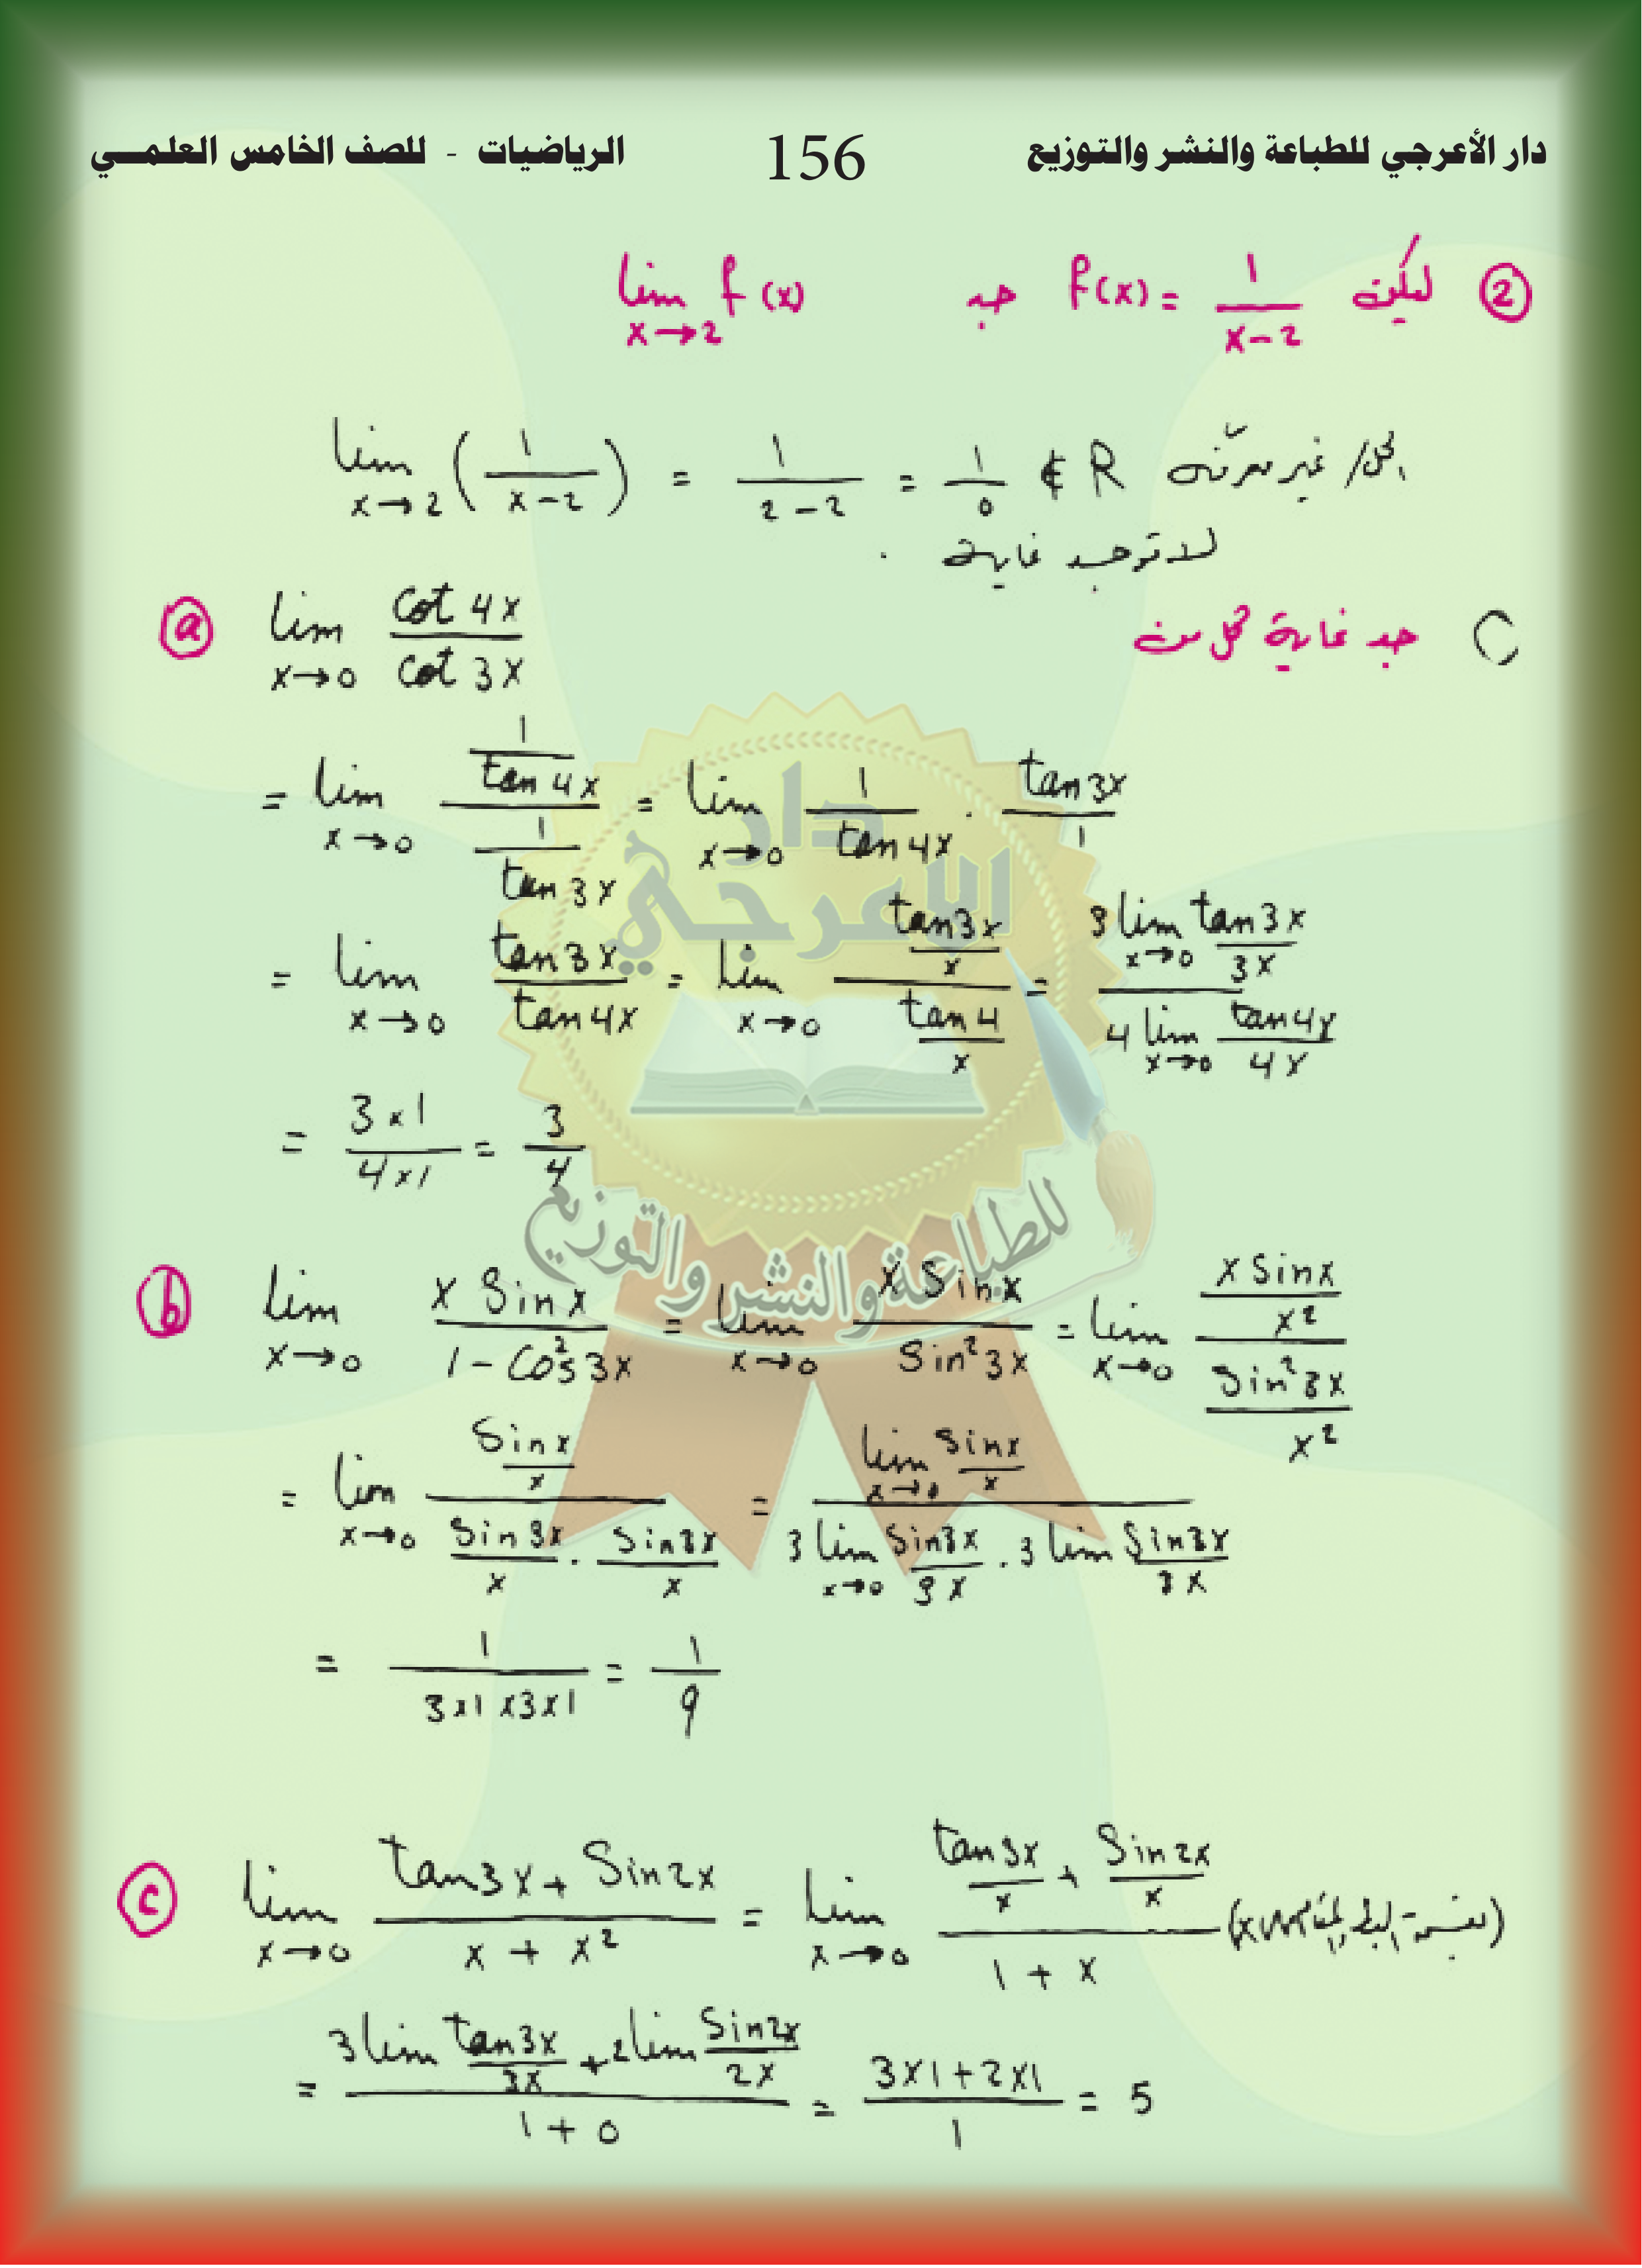 دار الأعرجي للطباعة والنشر والتوزيع 156 الرياضيات - للصف الخامس العلمي
② ليكن f(x) = 1/(x-2) جد lim x→2 f(x)
الحل/ غير معرّفه lim x→2 (1/(x-2)) = 1/(2-2) = 1/0 ∉ R
لا توجد غاية .
C جد غاية كل من
ⓐ lim x→0 cot 4x / cot 3x
= lim x→0 (1/tan 4x)/(1/tan 3x) = lim x→0 1/tan 4x · tan 3x/1
= lim x→0 tan 3x / tan 4x = lim x→0 (tan 3x / x)/(tan 4 / x) = (3 lim x→0 tan 3x / 3x)/(4 lim x→0 tan 4x / 4x)
= (3 × 1)/(4 × 1) = 3/4
ⓑ lim x→0 x Sin x / (1 - Cos² 3x) = lim x→0 x Sin x / Sin² 3x = lim x→0 (x Sin x / x²)/(Sin² 3x / x²)
= lim x→0 (Sin x / x)/(Sin 3x / x · Sin 3x / x) = (lim x→0 Sin x / x)/(3 lim x→0 Sin 3x / 3x · 3 lim Sin 3x / 3x)
= 1/(3×1×3×1) = 1/9
ⓒ lim x→0 (tan 3x + Sin 2x)/(x + x²) = lim x→0 (tan 3x / x + Sin 2x / x)/(1 + x)
= (3 lim tan 3x / 3x + 2 lim Sin 2x / 2x)/(1 + 0) = (3×1 + 2×1)/1 = 5
دار
الأعرجي
للطباعة والنشر والتوزيع